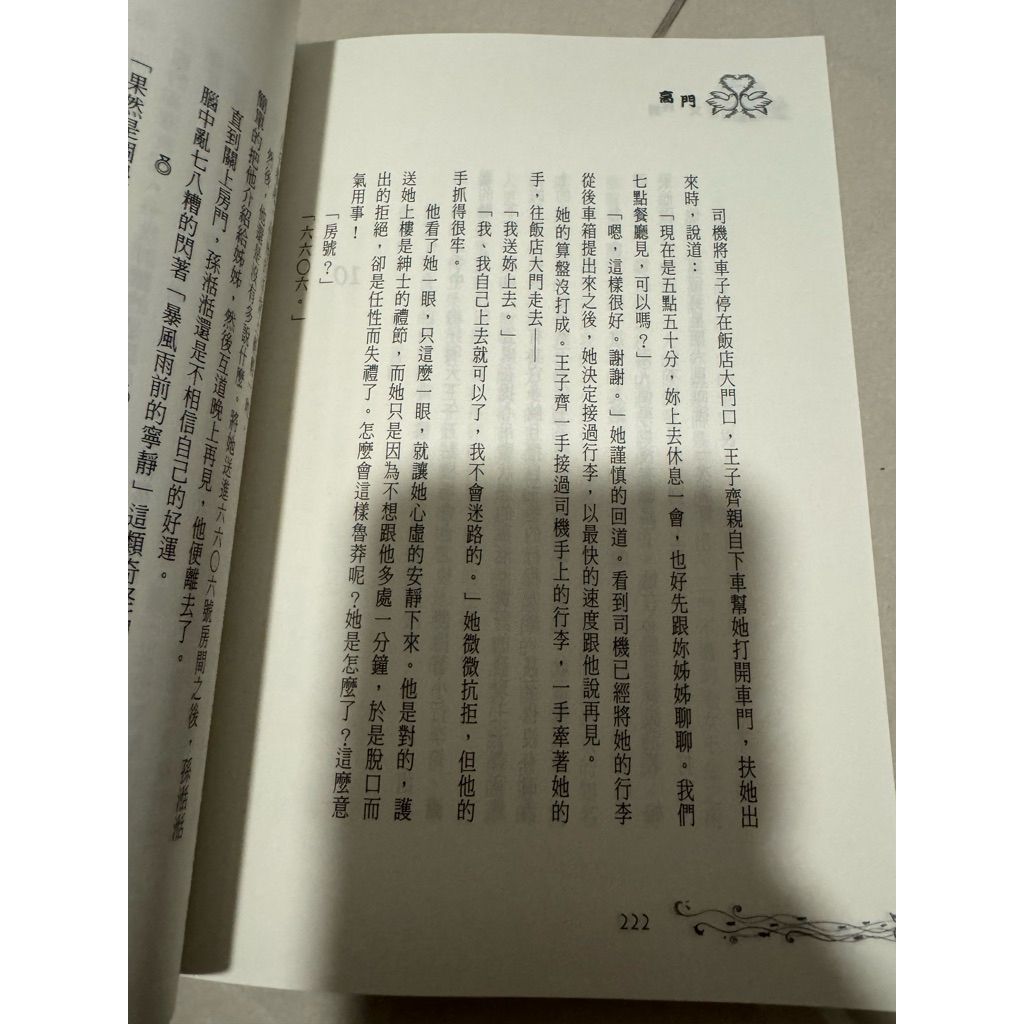 高門
司機將車子停在飯店大門口，王子齊親自下車幫她打開車門，扶她出
來時，說道：
「現在是五點五十分，妳上去休息一會，也好先跟妳姊姊聊聊。我們
七點餐廳見，可以嗎？」
「嗯，這樣很好。謝謝。」她謹慎的回道。看到司機已經將她的行李
從後車箱提出來之後，她決定接過行李，以最快的速度跟他說再見。
她的算盤沒打成。王子齊一手接過司機手上的行李，一手牽著她的
手，往飯店大門走去——
「我送妳上去。」
「我、我自己上去就可以了，我不會迷路的。」她微微抗拒，但他的
手抓得很牢。
他看了她一眼，只這麼一眼，就讓她心虛的安靜下來。他是對的，護
送她上樓是紳士的禮節，而她只是因為不想跟他多處一分鐘，於是脫口而
出的拒絕，卻是任性而失禮了。怎麼會這樣魯莽呢？她是怎麼了？這麼意
氣用事！
「房號？」
「六六〇六。」
222
然後，他還是沒有多說什麼。將她送進六六〇六號房間之後，孫湉湉
簡單的把他介紹給姊姊，然後互道晚上再見，他便離去了。
直到關上房門，孫湉湉還是不相信自己的好運。
腦中亂七八糟的閃著「暴風雨前的寧靜」這類
「果然是個